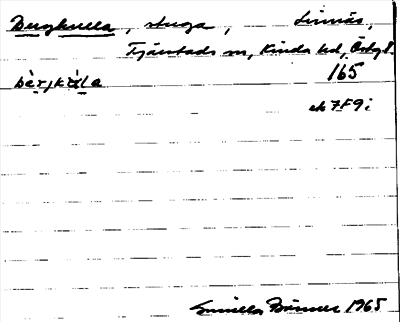 Bergkulla, stuga, Linnäs,
Tjärstads sn, Kinda hd, Östg l.
bærjkùla 165
ek 7F9i
Gunilla 1965